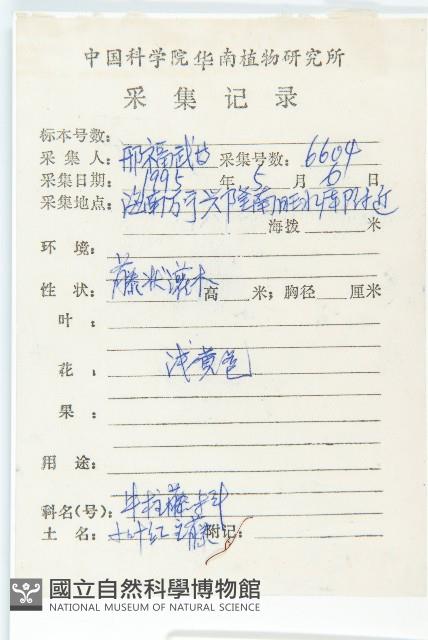 中国科学院华南植物研究所
采集记录
标本号数:
采集人: 邢福武等 采集号数: 6604
采集日期: 1995 年 5 月 6 日
采集地点: 海南万宁兴隆南旺水库附近
海拨 米
环境:
性状: 藤状灌木 高 米; 胸径 厘米
叶:
花: 浅黄色
果:
用途:
科名(号): 科
土名: 小叶红 附记:
國立自然科學博物館
NATIONAL MUSEUM OF NATURAL SCIENCE